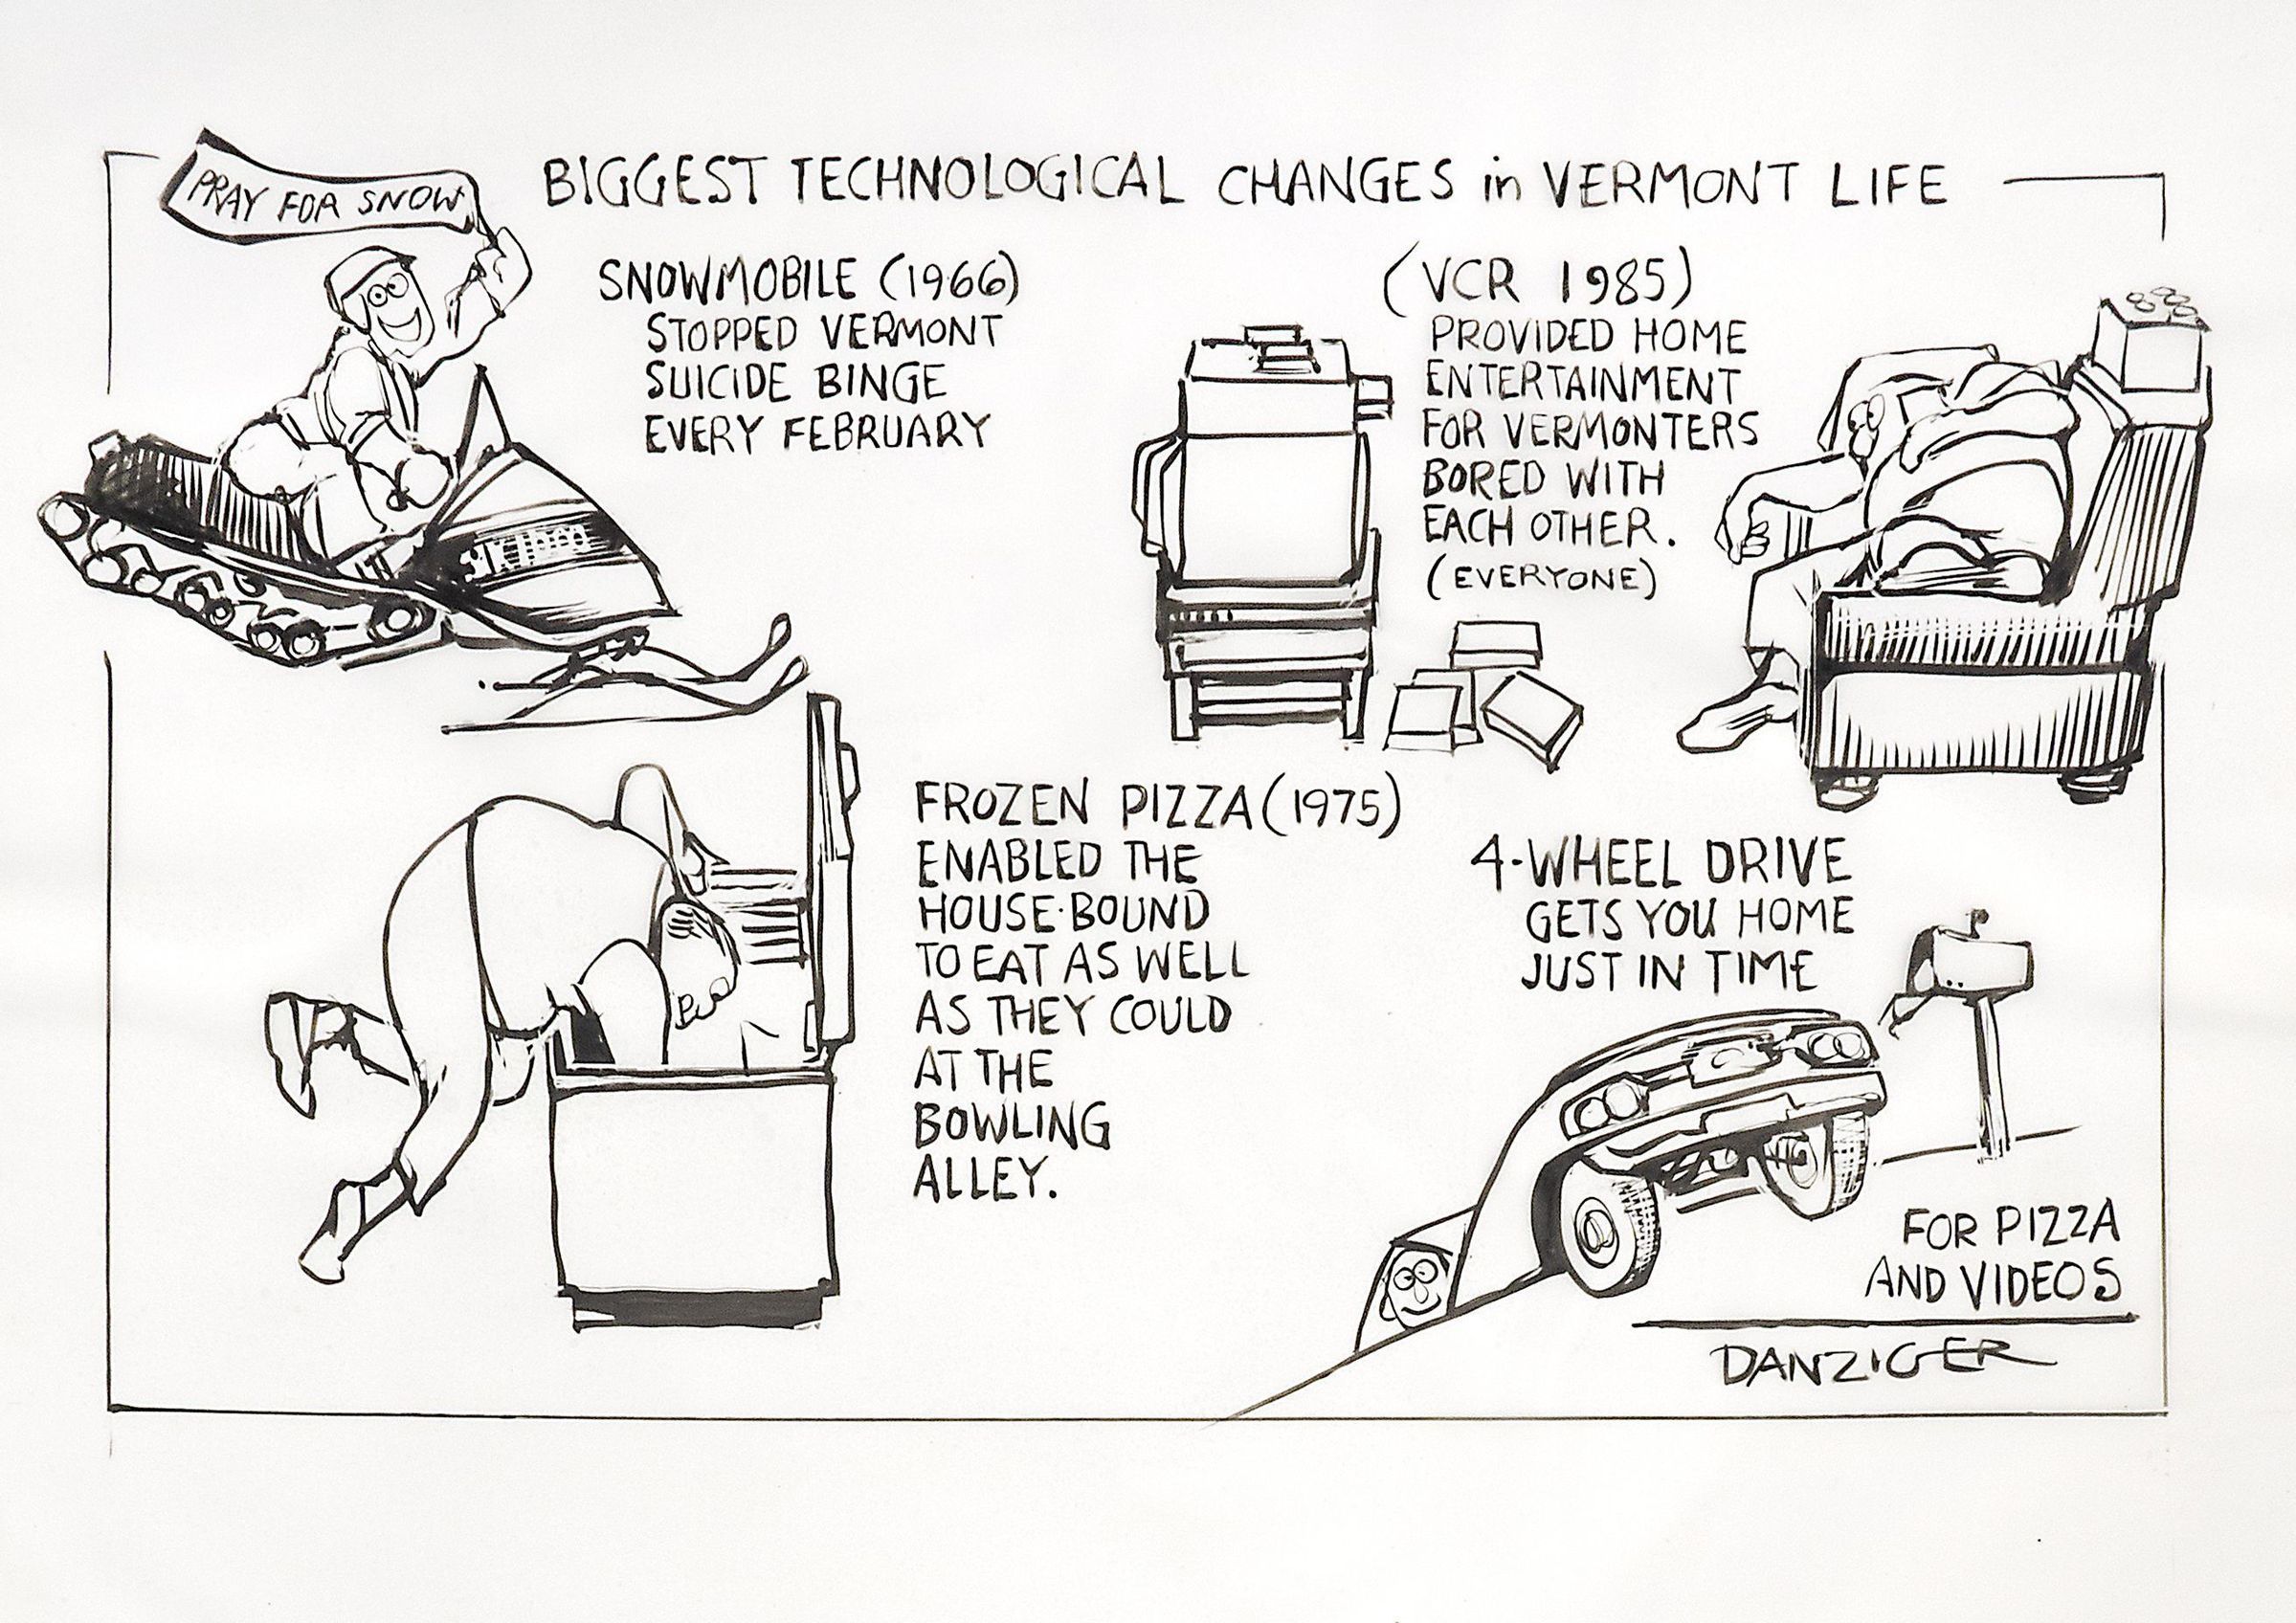 PRAY FOR SNOW
BIGGEST TECHNOLOGICAL CHANGES in VERMONT LIFE
SNOWMOBILE (1966)
STOPPED VERMONT
SUICIDE BINGE
EVERY FEBRUARY
(VCR 1985)
PROVIDED HOME
ENTERTAINMENT
FOR VERMONTERS
BORED WITH
EACH OTHER.
(EVERYONE)
FROZEN PIZZA (1975)
ENABLED THE
HOUSE-BOUND
TO EAT AS WELL
AS THEY COULD
AT THE
BOWLING
ALLEY.
4-WHEEL DRIVE
GETS YOU HOME
JUST IN TIME
FOR PIZZA
AND VIDEOS
DANZIGER